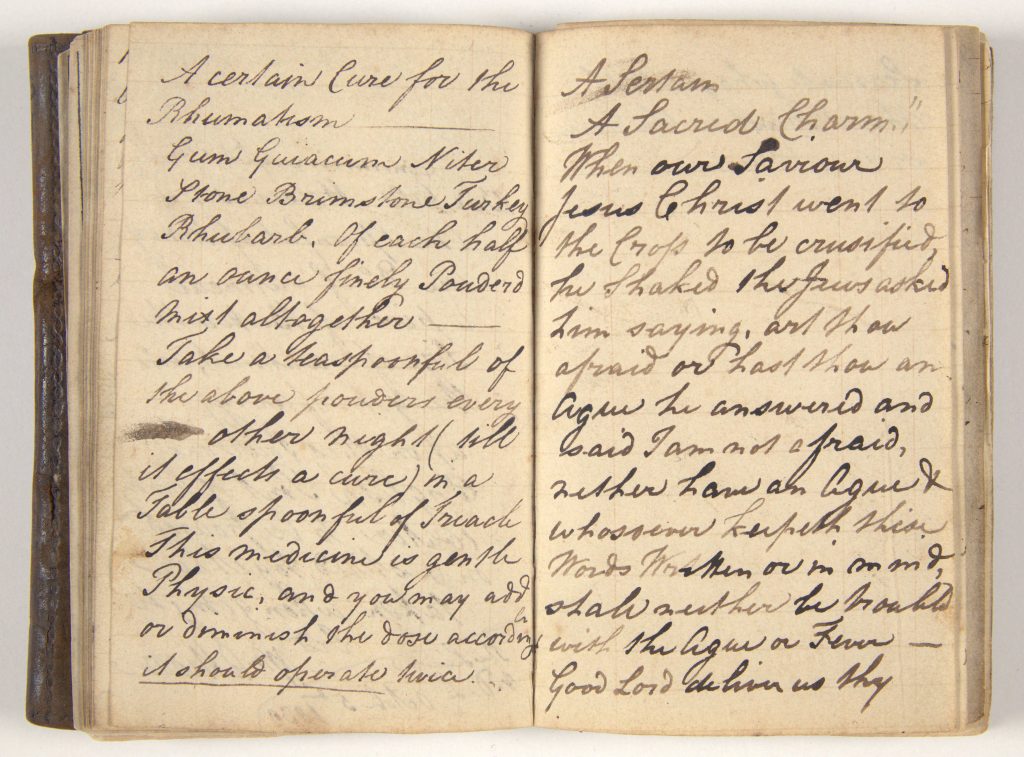 A certain Cure for the
Rheumatism
Gum Guiacum Niter
Stone Brimstone Turkey
Rhubarb. Of each half
an ounce finely Pouderd
mixt altogether
Take a teaspoonful of
the above pouders every
other night (till
it effects a cure) in a
Table spoonful of Treacle
This medicine is gentle
Physic, and you may add
or diminish the dose according
it should operate twice
A Sertain
A Sacred Charm"
When our Saviour
Jesus Christ went to
the Cross to be crusified,
he shaked the Jews asked
him saying, art thou
afraid or hast thou an
Ague he answered and
said I am not afraid,
nether have an Ague &
whosoever keepeth these
Words Written or in mind,
shall neither be troubld
with the Ague or Fever —
Good Lord deliver us thy